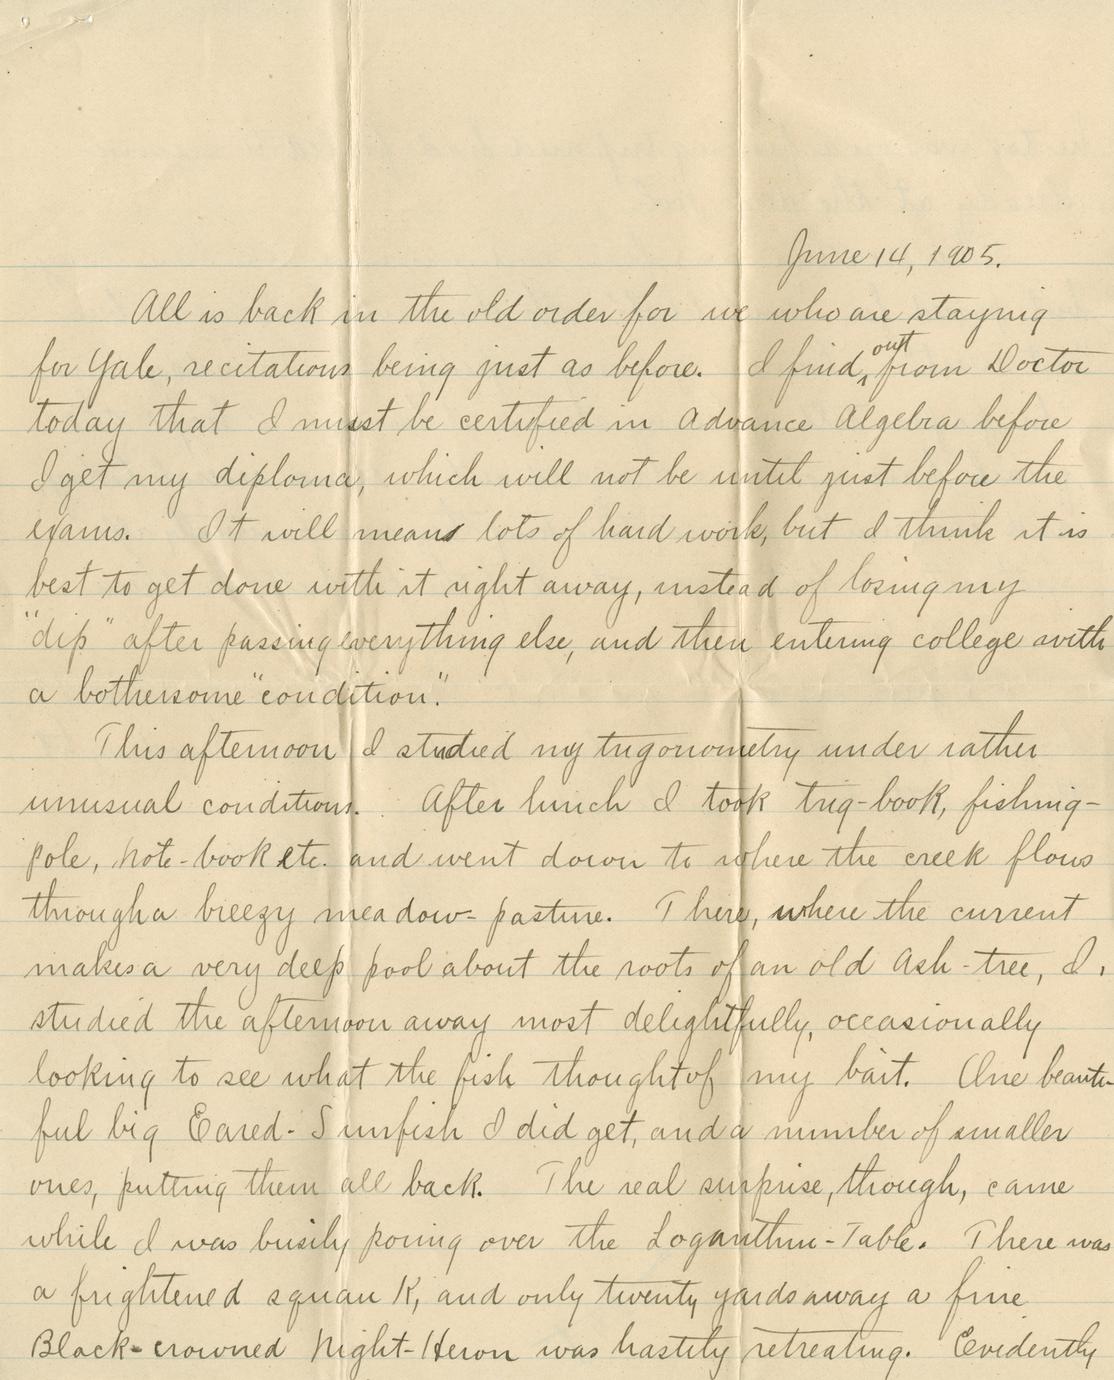 June 14, 1905.
All is back in the old order for we who are staying
for Yale, recitations being just as before. I find out from Doctor
today that I must be certified in Advance Algebra before
I get my diploma, which will not be until just before the
exams. It will means lots of hard work, but I think it is
best to get done with it right away, instead of losing my
"dip" after passing everything else, and then entering college with
a bothersome "condition".
This afternoon I studied my trigonometry under rather
unusual conditions. After lunch I took trig-book, fishing-
pole, note-book etc. and went down to where the creek flows
through a breezy meadow-pasture. There, where the current
makes a very deep pool about the roots of an old Ash-tree, I
studied the afternoon away most delightfully, occasionally
looking to see what the fish thought of my bait. One beauti-
ful big Eared-Sunfish I did get, and a number of smaller
ones, putting them all back. The real surprise, though, came
while I was busily poring over the Logarithm-Table. There was
a frightened squauk, and only twenty yards away a fine
Black-crowned Night-Heron was hastily retreating. Evidently